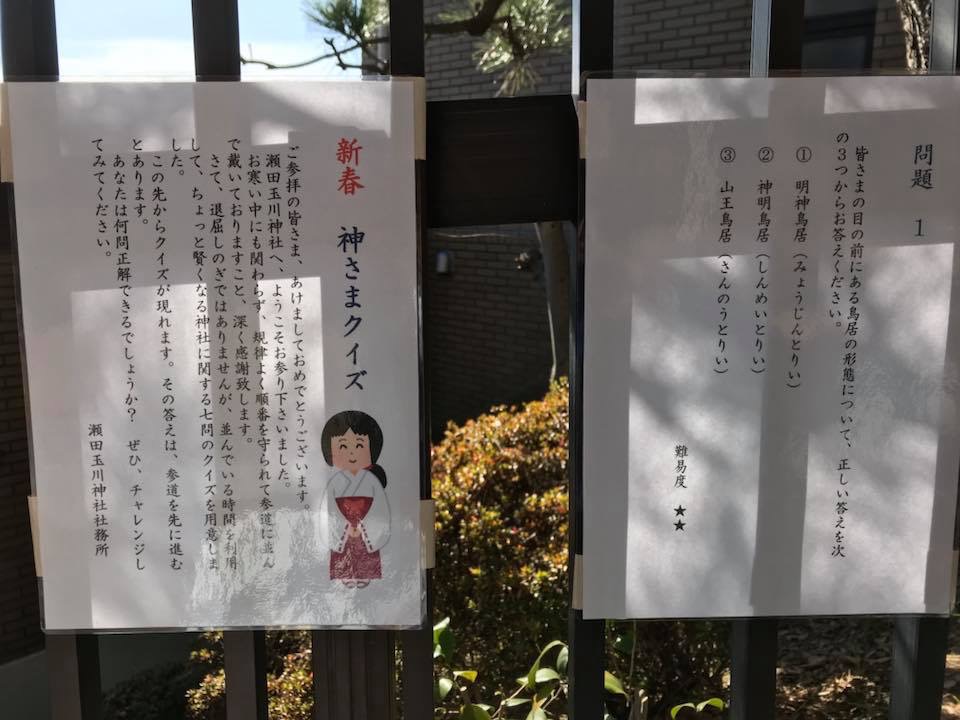 新春　神さまクイズ
ご参拝の皆さま、あけましておめでとうございます。
瀬田玉川神社へ、ようこそお参り下さいました。
お寒い中にも関わらず、規律よく順番を守られて参道に並ん
で戴いておりますこと、深く感謝致します。
さて、退屈しのぎではありませんが、並んでいる時間を利用
して、ちょっと賢くなる神社に関する七問のクイズを用意しま
した。
この先からクイズが現れます。その答えは、参道を先に進む
とあります。
あなたは何問正解できるでしょうか？　ぜひ、チャレンジし
てみてください。
瀬田玉川神社社務所
問題　1
皆さまの目の前にある鳥居の形態について、正しい答えを次
の３つからお答えください。
① 明神鳥居（みょうじんとりい）
② 神明鳥居（しんめいとりい）
③ 山王鳥居（さんのうとりい）
難易度　★★